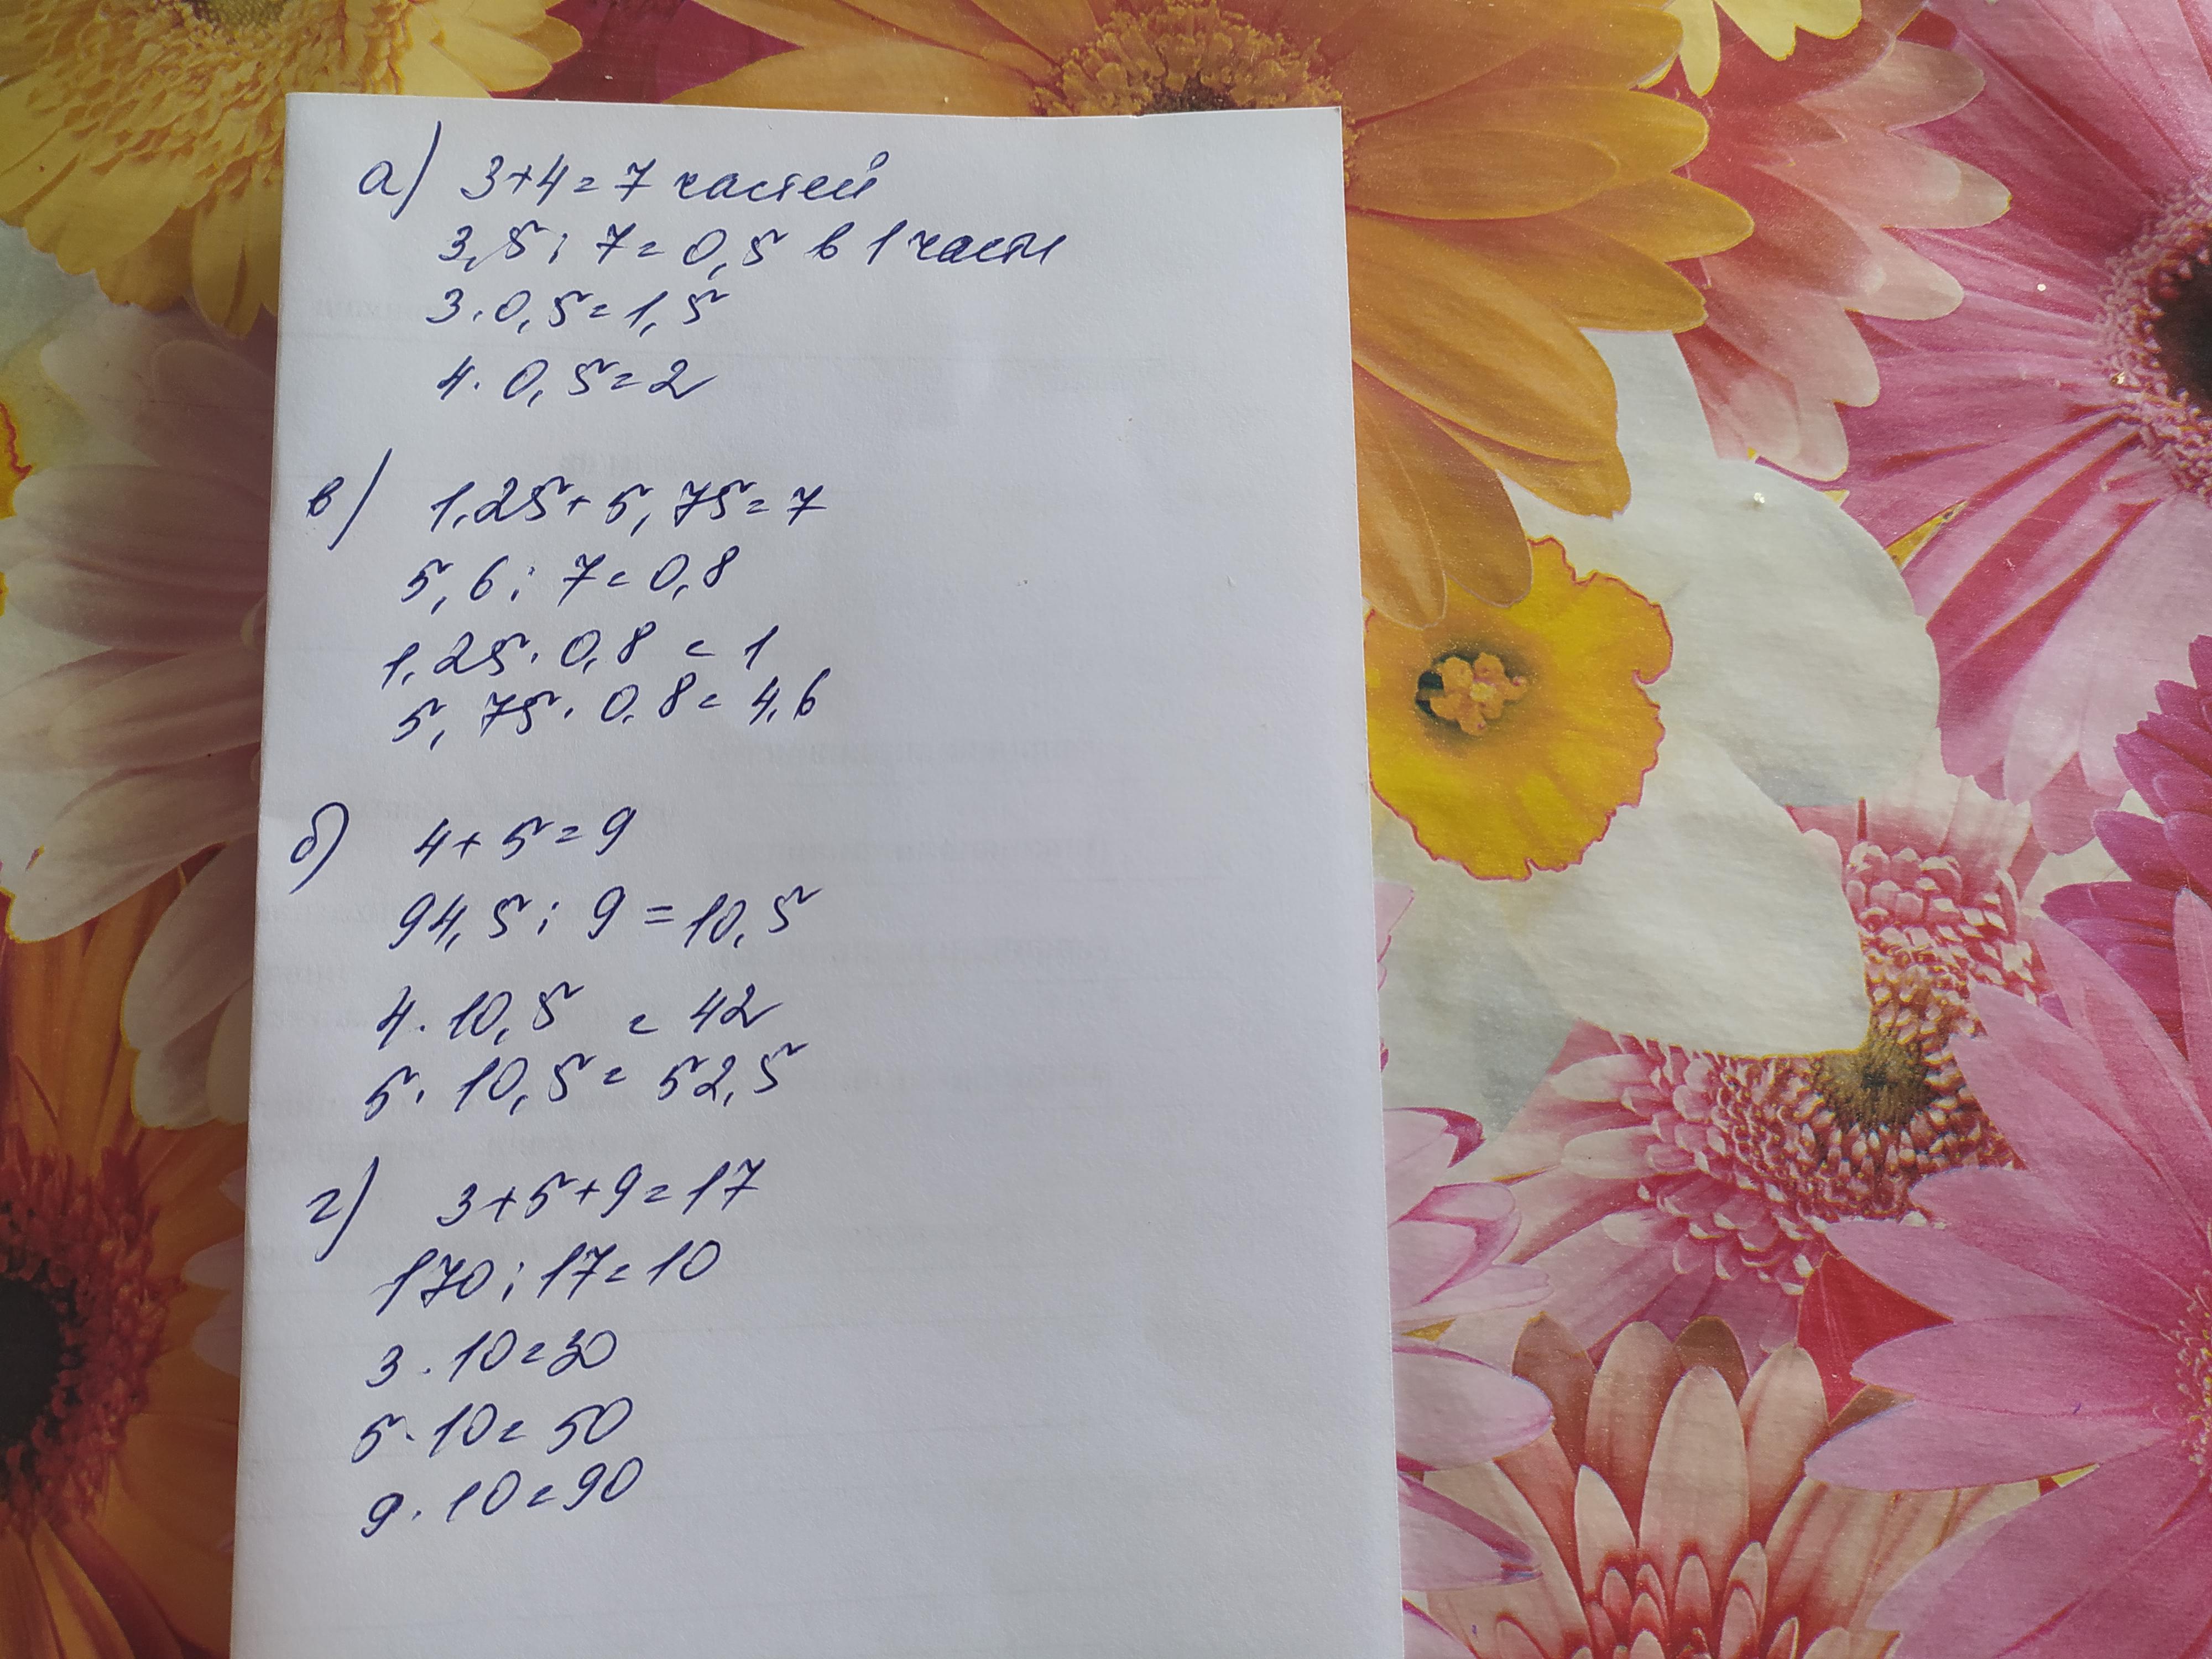 а) 3+4=7 частей
3,5:7=0,5 в 1 части
3·0,5=1,5
4·0,5=2
в) 1,25+5,75=7
5,6:7=0,8
1,25·0,8=1
5,75·0,8=4,6
б) 4+5=9
94,5:9=10,5
4·10,5=42
5·10,5=52,5
г) 3+5+9=17
170:17=10
3·10=30
5·10=50
9·10=90